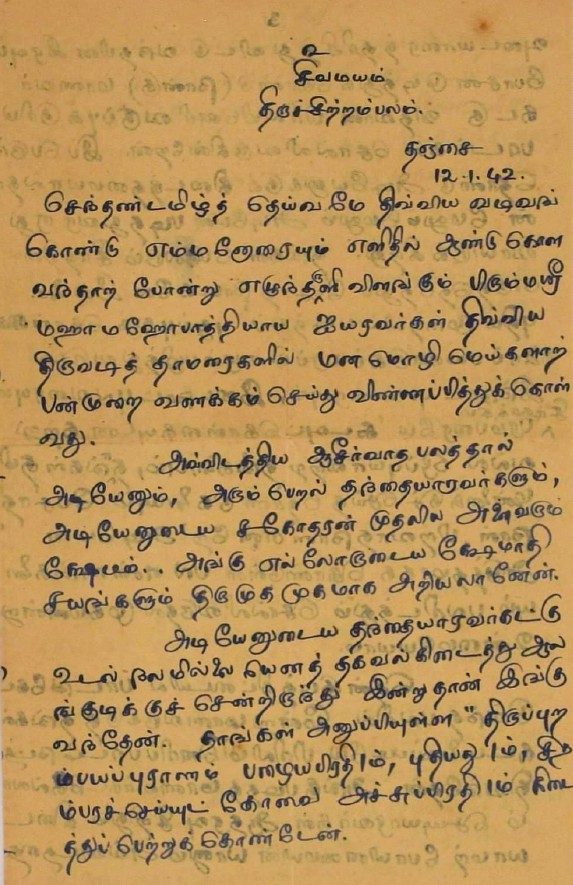 உ
சிவமயம்
திருச்சிற்றம்பலம்.
தஞ்சை
12.1.42.
செந்தண்டமிழ்த் தெய்வமே திவ்விய வடிவங்
கொண்டு எம்மனோரையும் எளிதில் ஆண்டுகொள
வந்தாற் போன்று எழுந்தருளி விளங்கும் பிரும்மஸ்ரீ
மஹாமஹோபாத்தியாய ஐயரவர்கள் திவ்விய
திருவடித் தாமரைகளில் மனமொழி மெய்களாற்
பன்முறை வணக்கம் செய்து விண்ணப்பித்துக்கொள்
வது.
அவ்விடத்திய ஆசீர்வாத பலத்தால்
அடியேனும், அரும்பெறல் தந்தையாரவர்களும்,
அடியேனுடைய சகோதரன் முதலிய அனைவரும்
க்ஷேமம்.. அங்கு எல்லோருடைய க்ஷேமாதி
சயங்களும் திருமுக முகமாக அறியலானேன்.
அடியேனுடைய தந்தையாரவர்கட்கு
உடல் நலமில்லை யெனத் தகவல் கிடைத்து ஆல
ங்குடிக்குச் சென்றிருந்து இன்றுதான் இங்கு
வந்தேன். தாங்கள் அனுப்பியுள்ள "திருப்புற
ம்பயப்புராணம் பழையபிரதி 1ம், புதியது 1ம், சித
ம்பரச்செய்யுட் கோவை அச்சுப்பிரதி 1ம் கிடை
த்துப் பெற்றுக் கொண்டேன்.